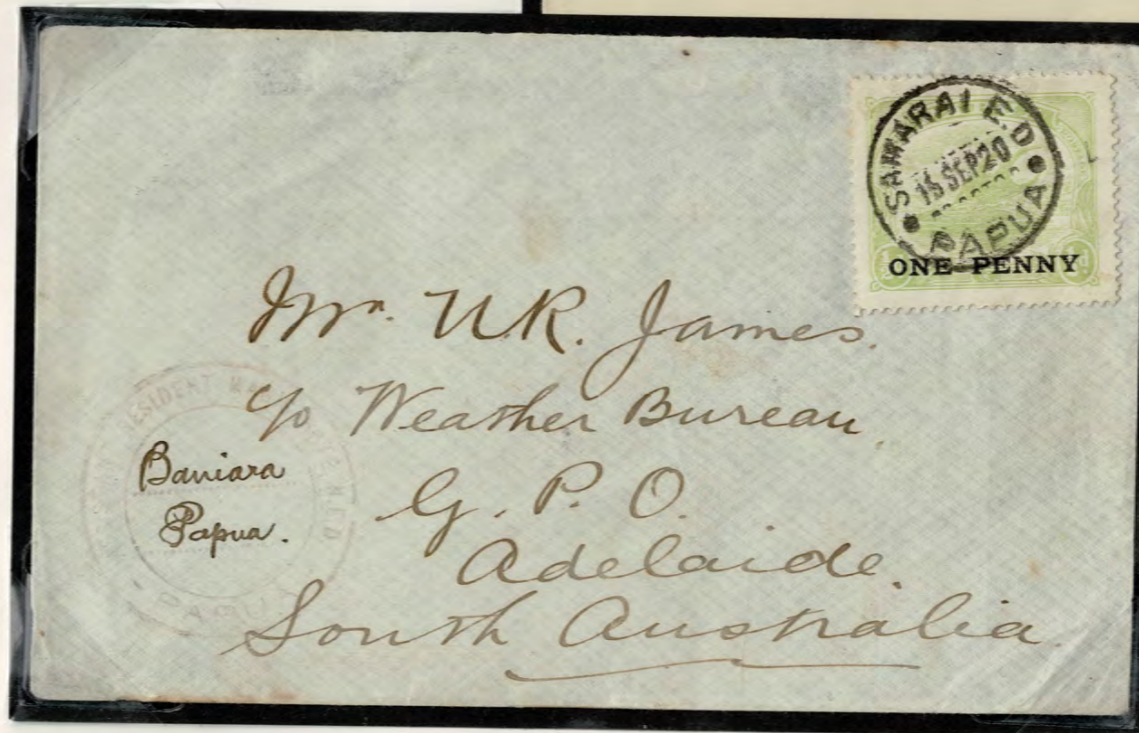 SAMARAI E.D
15 SEP 20
PAPUA
ONE PENNY
Mr. U.R. James.
c/o Weather Bureau,
G. P. O.
Adelaide.
South Australia.
RESIDENT
N.E.D
PAPUA
Baniara
Papua.